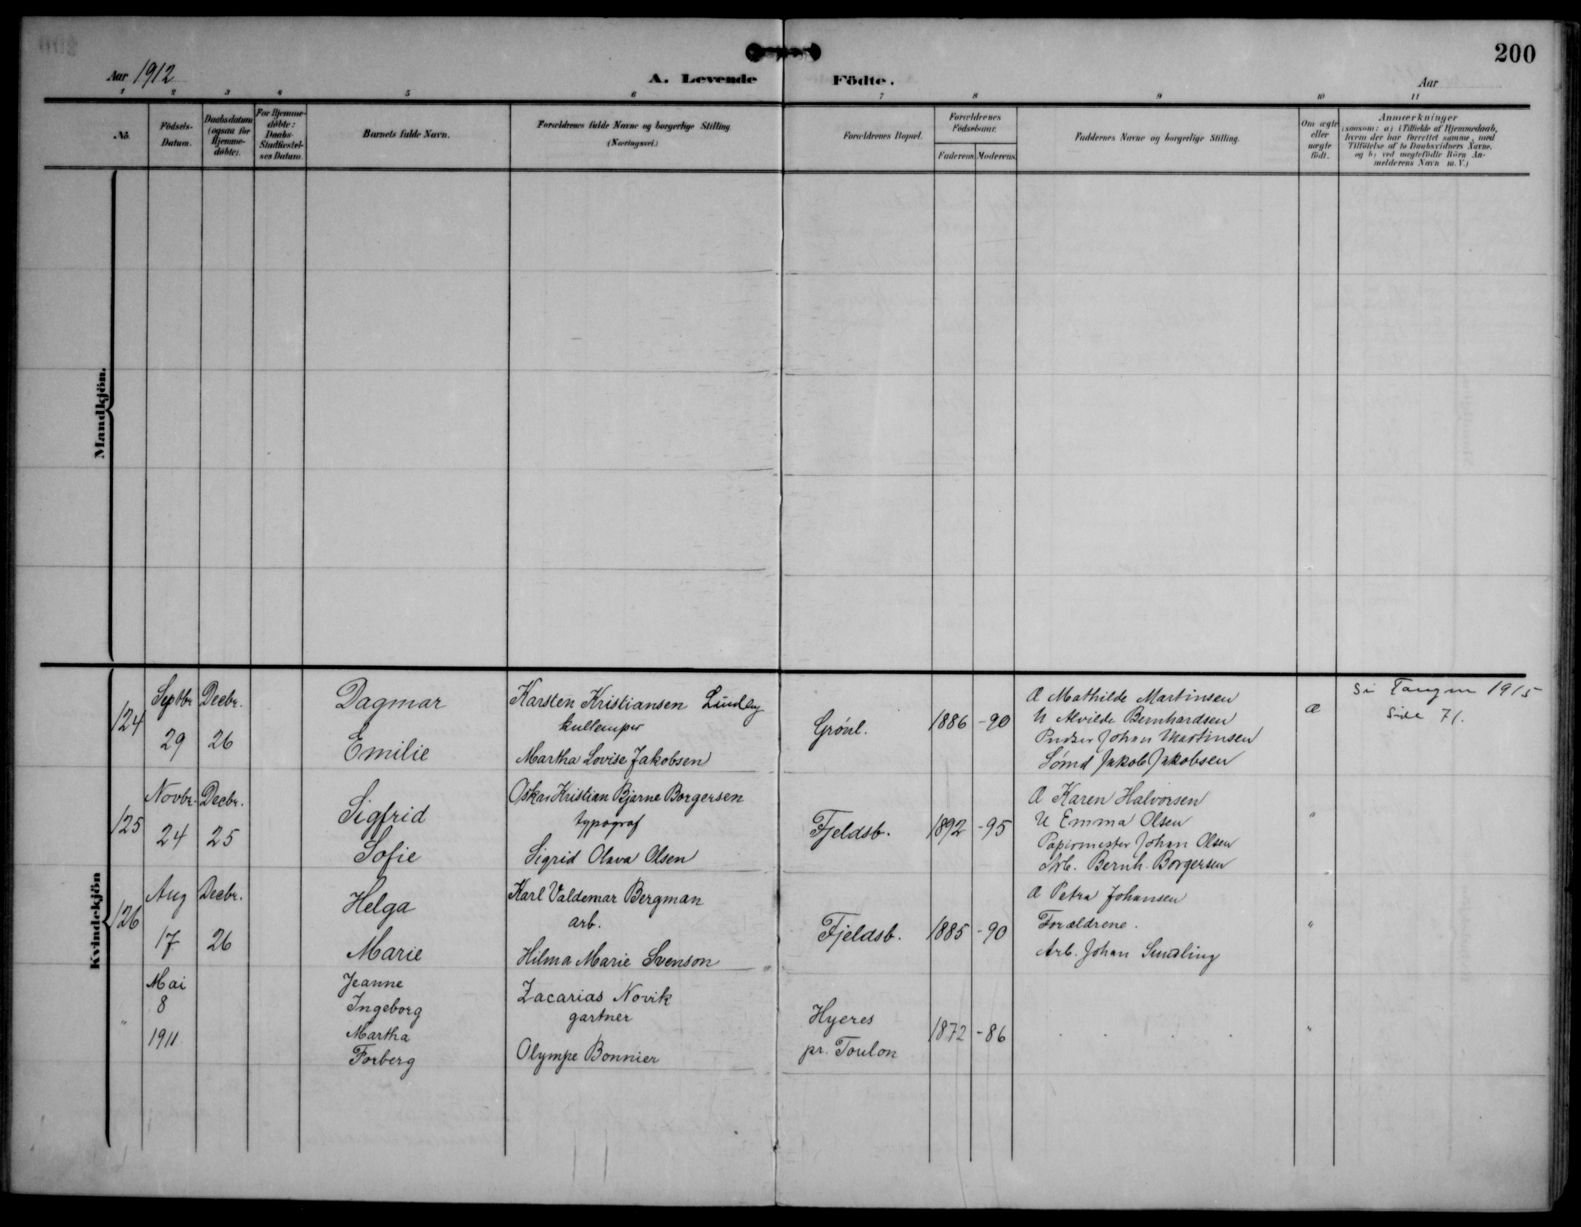 200
Aar 1912
A. Levende Födte.
Aar
1 2 3 4 5 6 7 8 9 10 11
No.
Födsels-
Datum.
Daabsdatum
(ogsaa for
Hjemme-
döbte).
For Hjemme-
döbte:
Daabs-
Stadfæstel-
ses Datum.
Barnets fulde Navn.
Forældrenes fulde Navne og borgerlige Stilling
(Næringsvei.)
Forældrenes Bopæl.
Forældrenes
Födselsaar.
Faderens Moderens
Faddernes Navne og borgerlige Stilling.
Om ægte
eller
uægte
födt.
Anmærkninger
(saasom: a) i Tilfælde af Hjemmedaab,
hvem der har forrettet samme, med
Tilföielse af to Daabsvidners Navne,
og b) ved uægtefödte Börn An-
melderens Navn m. V.)
Mandkjön.
Kvindekjön
124
Septbr
29
Decbr.
26
Dagmar
Emilie
Karsten Kristiansen Lundby
Martha Lovise Jakobsen
Grönl.
1886 -90
Æ Mathilde Martinsen
U Alvilde Bernhardsen
Pudser Johan Martinsen
Sömd Jakob Jakobsen
Æ
1915
Side 71.
125
Novbr.
24
Decbr.
25
Sigfrid
Sofie
Oskar Kristian Bjarne Borgersen
typograf
Sigrid Olava Olsen
Fjeldsb.
1892 -95
Æ Karen Halvorsen
U Emma Olsen
Papirmester Johan Olsen
Arb. Bernh. Borgersen
"
126
Aug
17
Decbr.
26
Helga
Marie
Karl Valdemar Bergman
arb.
Hilma Marie Svenson
Fjeldsb.
1885 -90
Æ Petra Johansen
Forældrene.
Arb. Johan
"
"
Mai
8
1911
Jeanne
Ingeborg
Martha
Forberg
Zacarias Novik
gartner
Olympe Bonnier
Hyeres
pr. Toulon
1872 -86
"